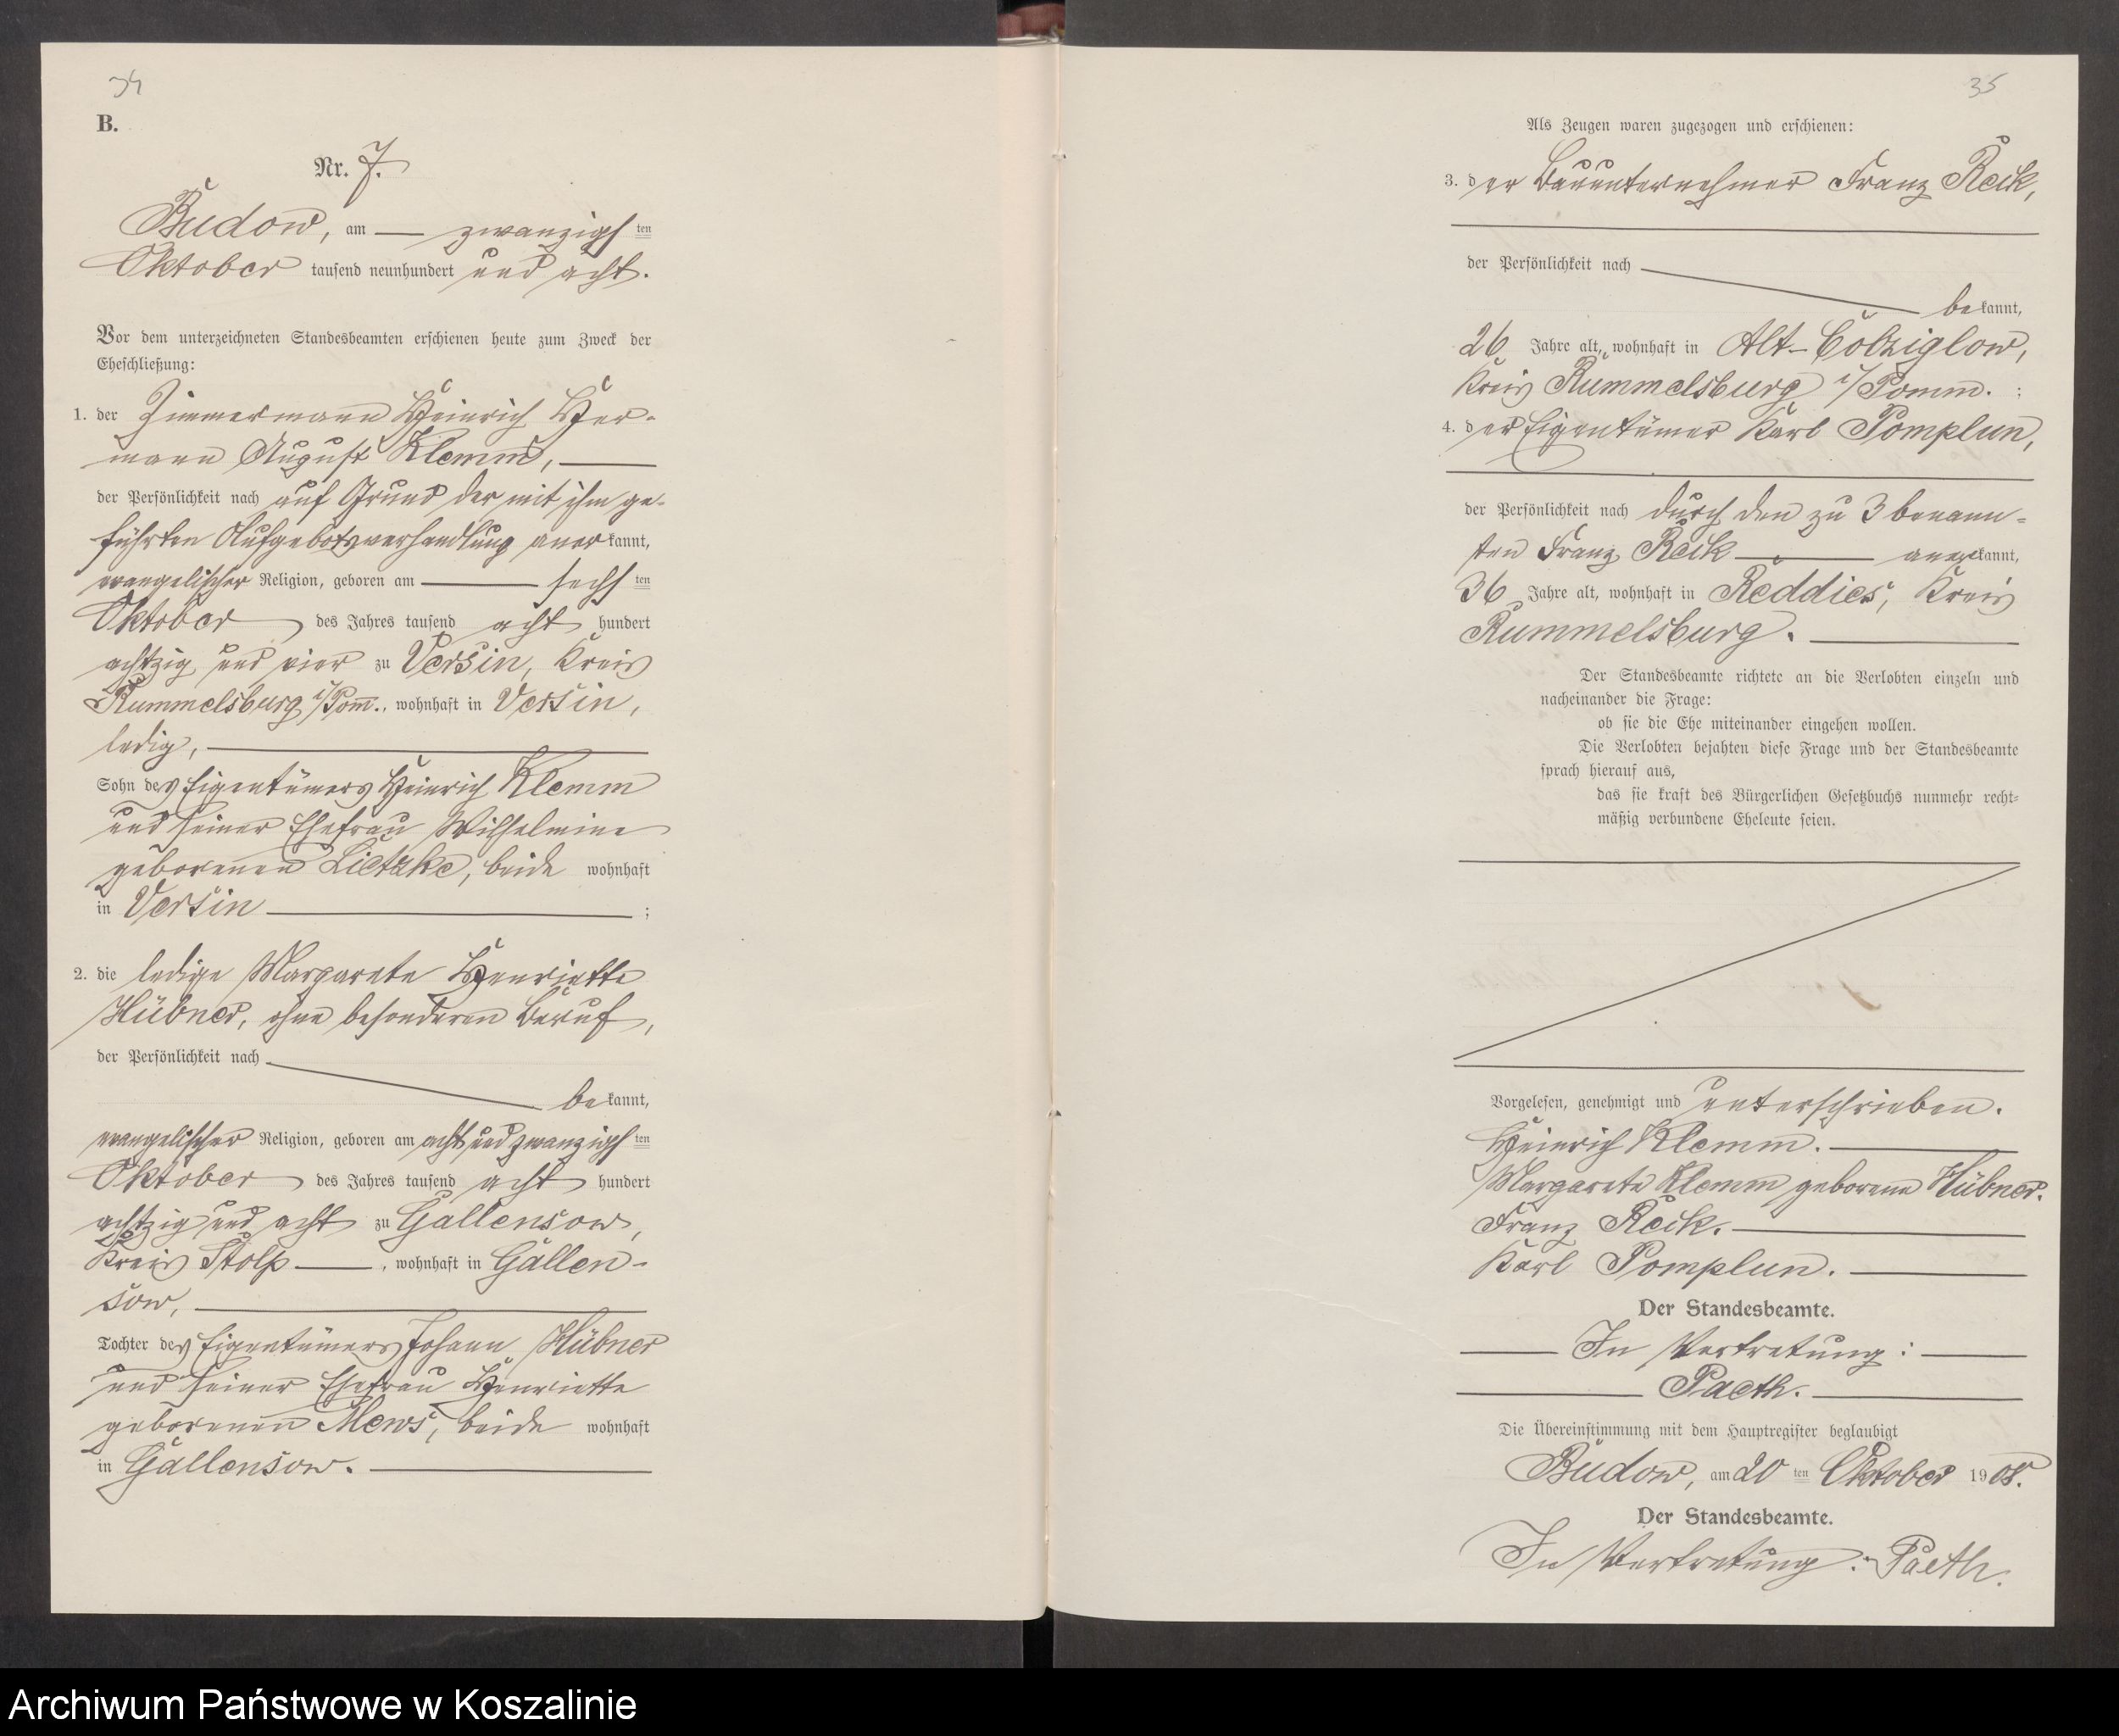 34
B.
Nr. 7.
Budow, am — zwanzigsten
Oktober tausend neunhundert und acht.
Vor dem unterzeichneten Standesbeamten erschienen heute zum Zweck der
Eheschließung:
1. der Zimmermann Heinrich Her-
mann August Klemm,
der Persönlichkeit nach auf Grund der mit ihm ge-
führten Aufgebotsverhandlung anerkannt,
evangelischer Religion, geboren am sechsten
Oktober des Jahres tausend acht hundert
achtzig und vier zu Versin, Kreis
Rummelsburg i/Pomm., wohnhaft in Versin,
ledig,
Sohn des Eigentümers Heinrich Klemm
und seiner Ehefrau Wilhelmine
geborenen Lietzke, beide wohnhaft
in Versin ;
2. die ledige Margarete Henriette
Hübner, ohne besonderen Beruf,
der Persönlichkeit nach
bekannt,
evangelischer Religion, geboren am acht und zwanzigsten
Oktober des Jahres tausend acht hundert
achtzig und acht zu Gallensow,
Kreis Stolp, wohnhaft in Gallen-
sow,
Tochter des Eigentümers Johann Hübner
und seiner Ehefrau Henriette
geborenen Mews, beide wohnhaft
in Gallensow.
35
Als Zeugen waren zugezogen und erschienen:
3. der Bauunternehmer Franz Reik,
der Persönlichkeit nach
bekannt,
26 Jahre alt, wohnhaft in Alt-Colziglow,
Kreis Rummelsburg i/Pomm. ;
4. der Eigentümer Karl Pomplun,
der Persönlichkeit nach durch den zu 3 benann-
ten Franz Reik anerkannt,
36 Jahre alt, wohnhaft in Reddies, Kreis
Rummelsburg.
Der Standesbeamte richtete an die Verlobten einzeln und
nacheinander die Frage:
ob sie die Ehe miteinander eingehen wollen.
Die Verlobten bejahten diese Frage und der Standesbeamte
sprach hierauf aus,
das sie kraft des Bürgerlichen Gesetzbuchs nunmehr recht-
mäßig verbundene Eheleute seien.
Vorgelesen, genehmigt und unterschrieben.
Heinrich Klemm.
Margarete Klemm geborene Hübner.
Franz Reik.
Karl Pomplun.
Der Standesbeamte.
In Vertretung:
Paeth.
Die Übereinstimmung mit dem Hauptregister beglaubigt
Budow, am 20ten Oktober 1908.
Der Standesbeamte.
In Vertretung: Paeth.
Archiwum Państwowe w Koszalinie